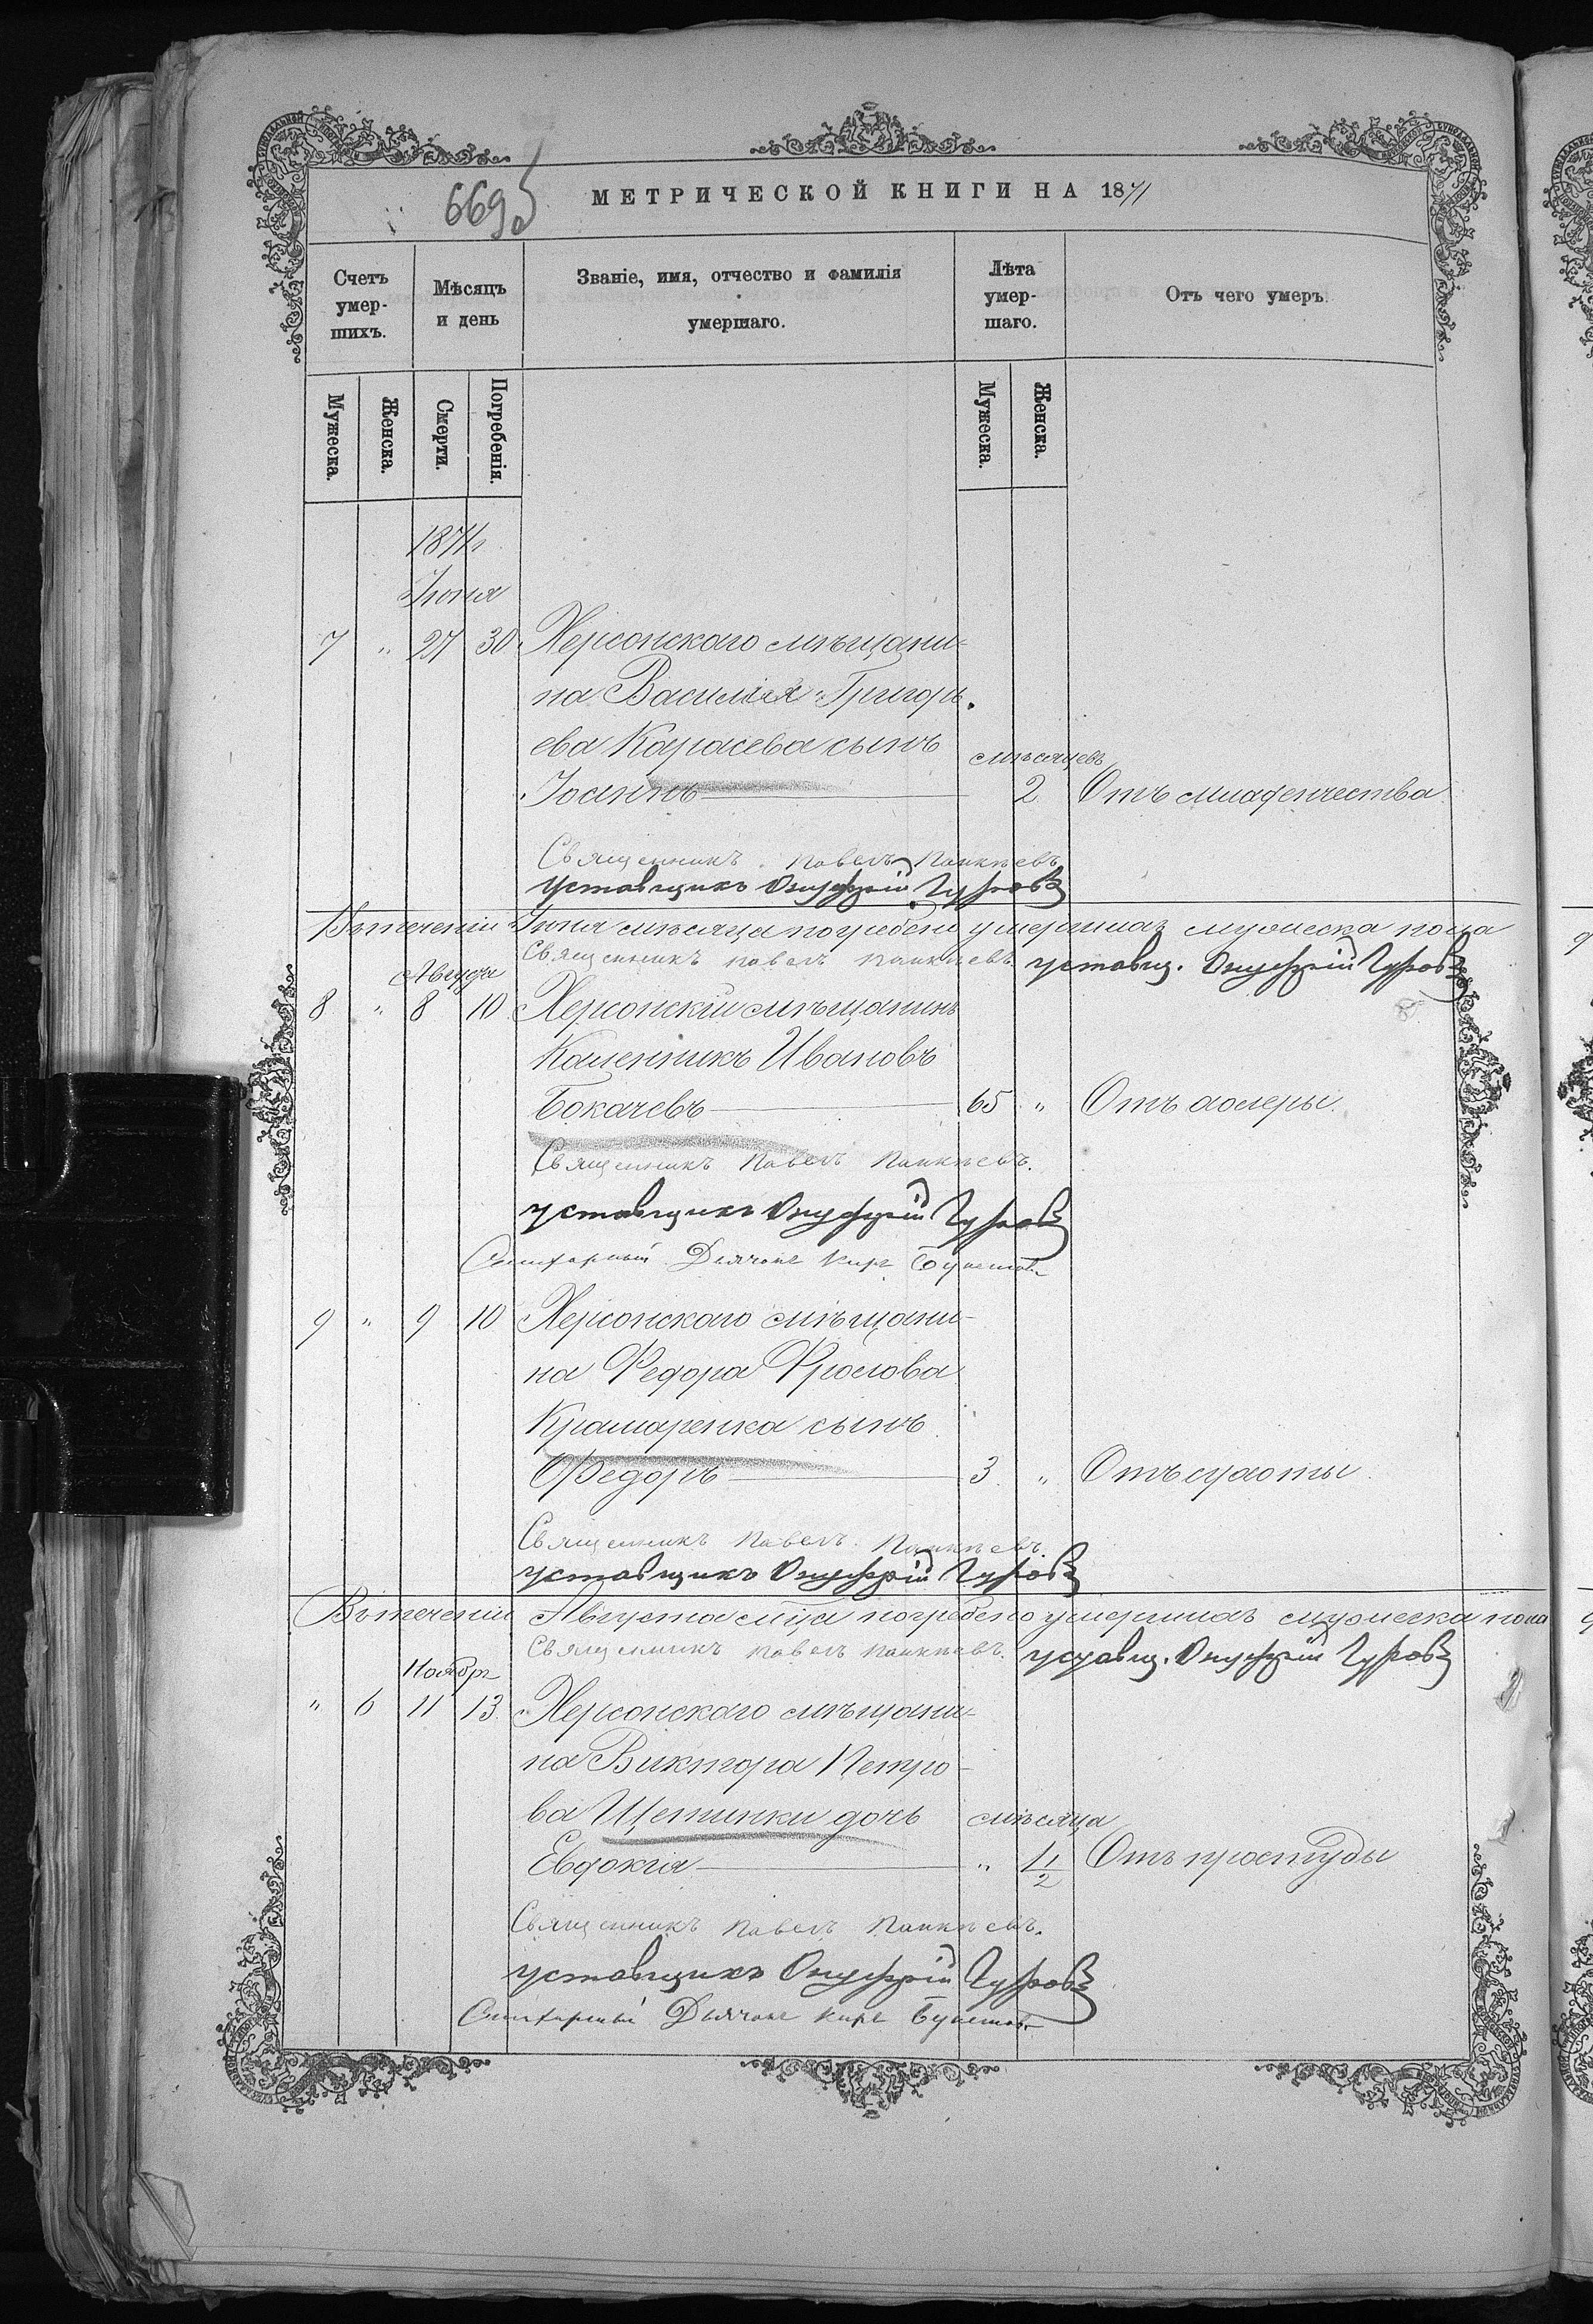 669
МЕТРИЧЕСКОЙ КНИГИ НА 1871
Счетъ умер-шихъ.
Мѣсяцъ и день
Званіе, имя, отчество и фамилія умершаго.
Лѣта умер-шаго.
Отъ чего умеръ.
Мужеска.
Женска.
Смерти.
Погребенія.
Мужеска.
Женска.
1871г
Іюня
7 " 27 30 Херсонскаго мѣщани-
на Василія Григорь
ева Карасева сынъ
мѣсяцевъ
Іоаннъ 2 Отъ младенчества
Священникъ Павелъ
уставщикъ Онуфрій Гуровъ
Въ теченіи Іюня мѣсяца погребено умершихъ мужеска пола
Священникъ Павелъ уставщ. Онуфрій Гуровъ
Августа
8 " 8 10 Херсонскій мѣщанинъ
Калинникъ Ивановъ
Бокачевъ 65 " Отъ холеры.
Священникъ Павелъ
уставщикъ Онуфрій Гуровъ
Дьячокъ Киръ
9 " 9 10 Херсонскаго мѣщани-
на Федора Фролова
Крамаренка сынъ
Федоръ 3 "
Священникъ Павелъ
уставщикъ Онуфрій Гуровъ
Въ теченіи Августа мѣца погребено умершихъ мужеска пола
Священникъ Павелъ уставщ. Онуфрій Гуровъ
Ноября
" 6 11 13 Херсонскаго мѣщани-
на Виктора Петро-
ва Щетинки дочь мѣсяца
Евдокія " 1 1/2 Отъ простуды
Священникъ Павелъ
уставщикъ Онуфрій Гуровъ
Дьячокъ Киръ